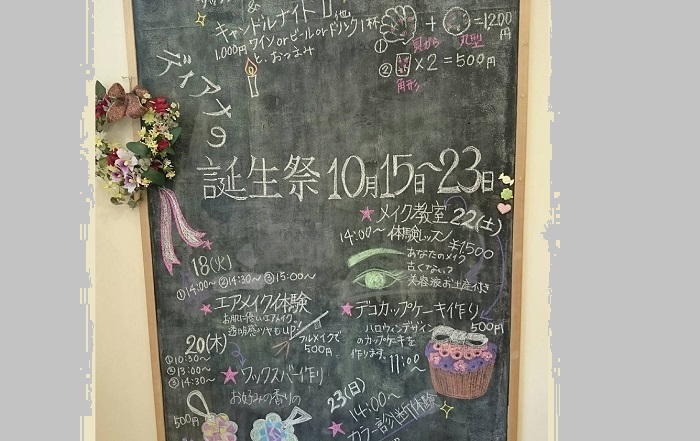 キャンドルナイト
1,000円 ワインorビールorドリンク1杯
と、おつまみ
① + =1200円
貝がら 丸型
② ×2=500円
角形
ディアナの
誕生祭 10月15日~23日
★メイク教室 22(土)
14:00~ 体験レッスン
¥1,500
あなたのメイク
古くない?
美容液お土産付き
18(火)
①14:00~ ②14:30~ ③15:00~
★エアメイク体験
お肌に優しいエアメイク
透明感・ツヤもUP!
フルメイクで
500円
★デコカップケーキ作り
500円
ハロウィンデザイン
のカップケーキを
作ります。
11:00~
20(木)
①10:30~
②13:00~
③14:30~
★ワックスバー作り
お好みの香りの
500円
23(日)
14:00~
★カラー診断体験